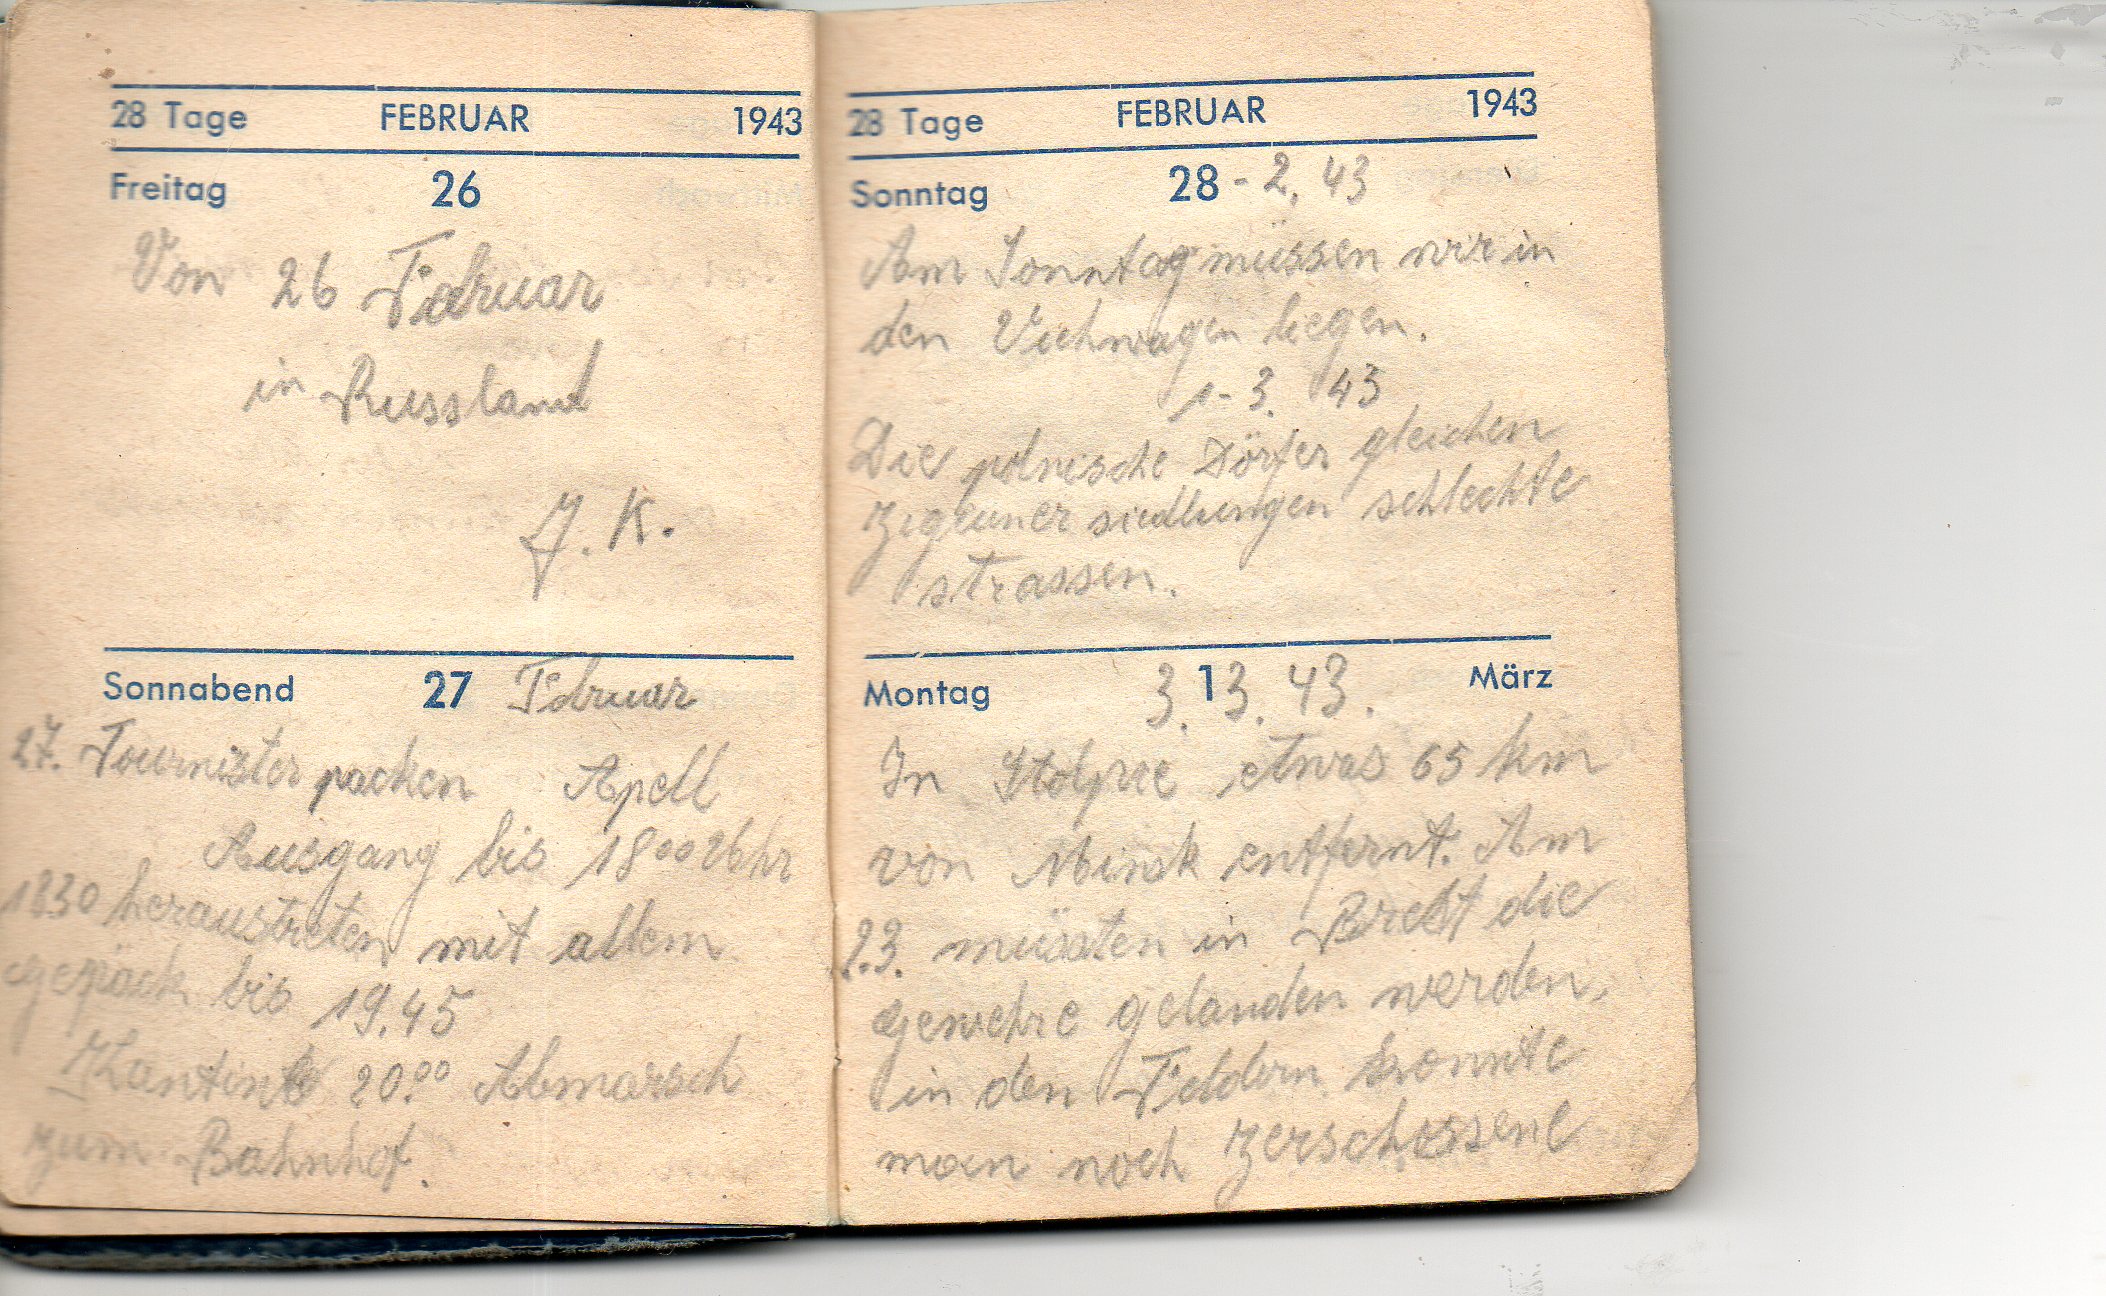 28 Tage FEBRUAR 1943
Freitag 26
Von 26 Februar
in Russland
J. K.
Sonnabend 27 Februar
27. Tournister packen Apell
Ausgang bis 18⁰⁰ Uhr
1830 heraustreten mit allem
gepäck bis 19.45
Kantine 20.⁰⁰ Abmarsch
zum Bahnhof.
28 Tage FEBRUAR 1943
Sonntag 28 - 2. 43
Am Sonntag müssen wir in
den Viehwagen liegen.
1 - 3. 43
Die polnische Dörfer gleichen
Zigeuner siedlungen schlechte
strassen.
Montag 3. 1 3. 43. März
In Stolpce etwas 65 km
von Minsk entfernt. Am
2.3. müssten in Brest die
gewehre gelanden werden.
in den Feldern konnte
man noch zerschossene